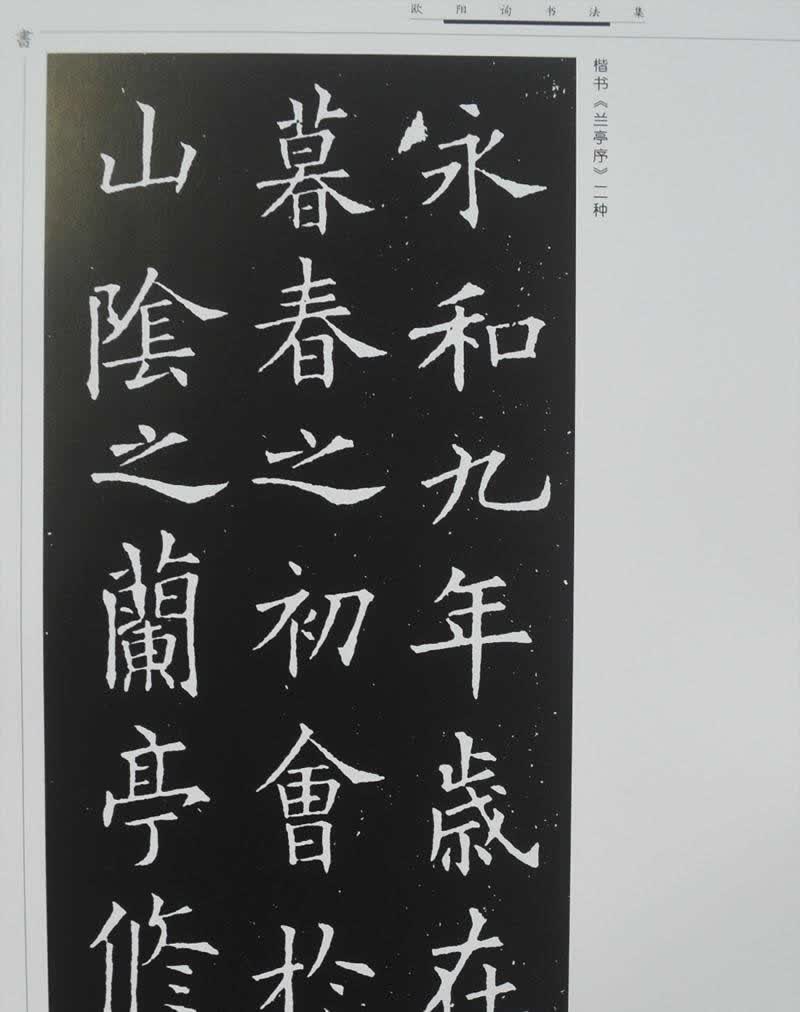 欧阳询书法集
書
楷书《兰亭序》二种
永和九年歲在
暮春之初會於
山陰之蘭亭修